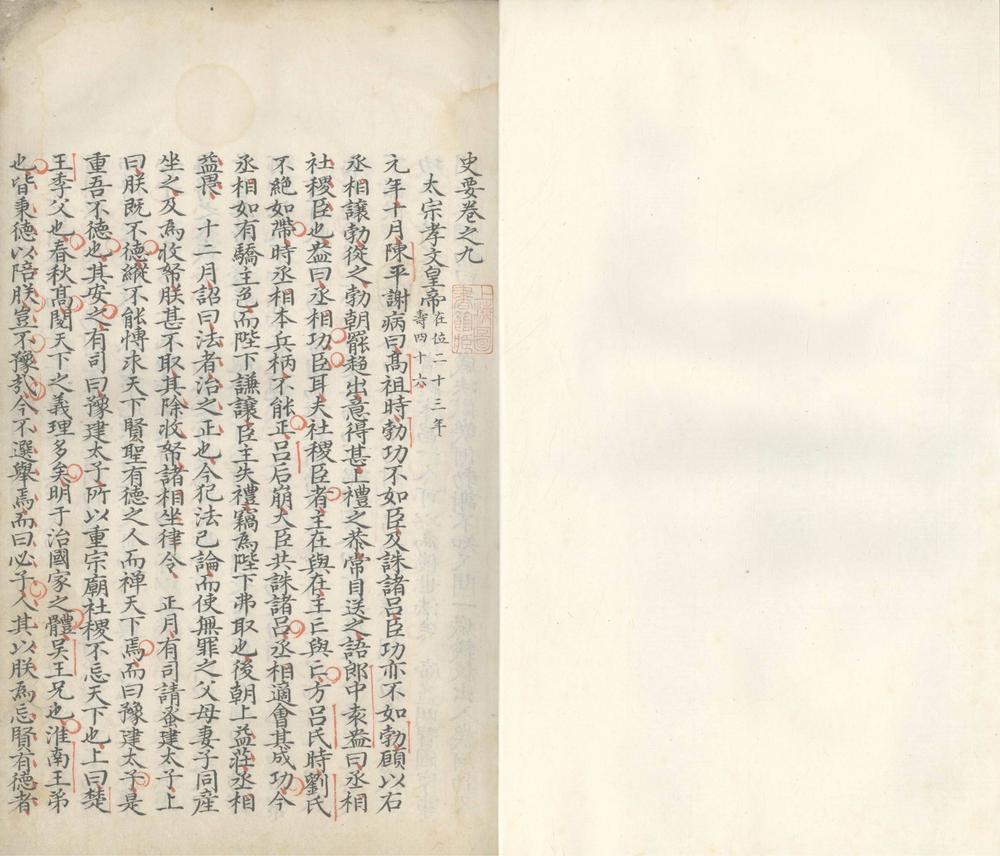 史要卷之九
太宗孝文皇帝在位二十三年
壽四十六
元年十月陳平謝病曰高祖時勃功不如臣及誅諸呂臣功亦不如勃願以右
丞相讓勃從之勃朝罷趨出意得甚上禮之恭常目送之語郎中袁盎曰丞相
社稷臣也盎曰丞相功臣耳夫社稷臣者主在與在主亡與亡方呂氏時劉氏
不絕如帶時丞相本兵柄不能正呂后崩大臣共誅諸呂丞相適會其成功今
丞相如有驕主色而陛下謙讓臣主失禮竊為陛下弗取也後朝上益莊丞相
益畏　十二月詔曰法者治之正也今犯法已論而使無罪之父母妻子同產
坐之及為收帑朕甚不取其除收帑諸相坐律令　正月有司請蚤建太子上
曰朕既不德縱不能愽求天下賢聖有德之人而禅天下焉而曰豫建太子是
重吾不德也其安之有司曰豫建太子所以重宗廟社稷不忘天下也上曰楚
王季父也春秋高閱天下之義理多矣明于治國家之體吴王兄也淮南王弟
也皆秉德以陪朕豈不豫哉今不選舉焉而曰必子人其以朕為忘賢有德者